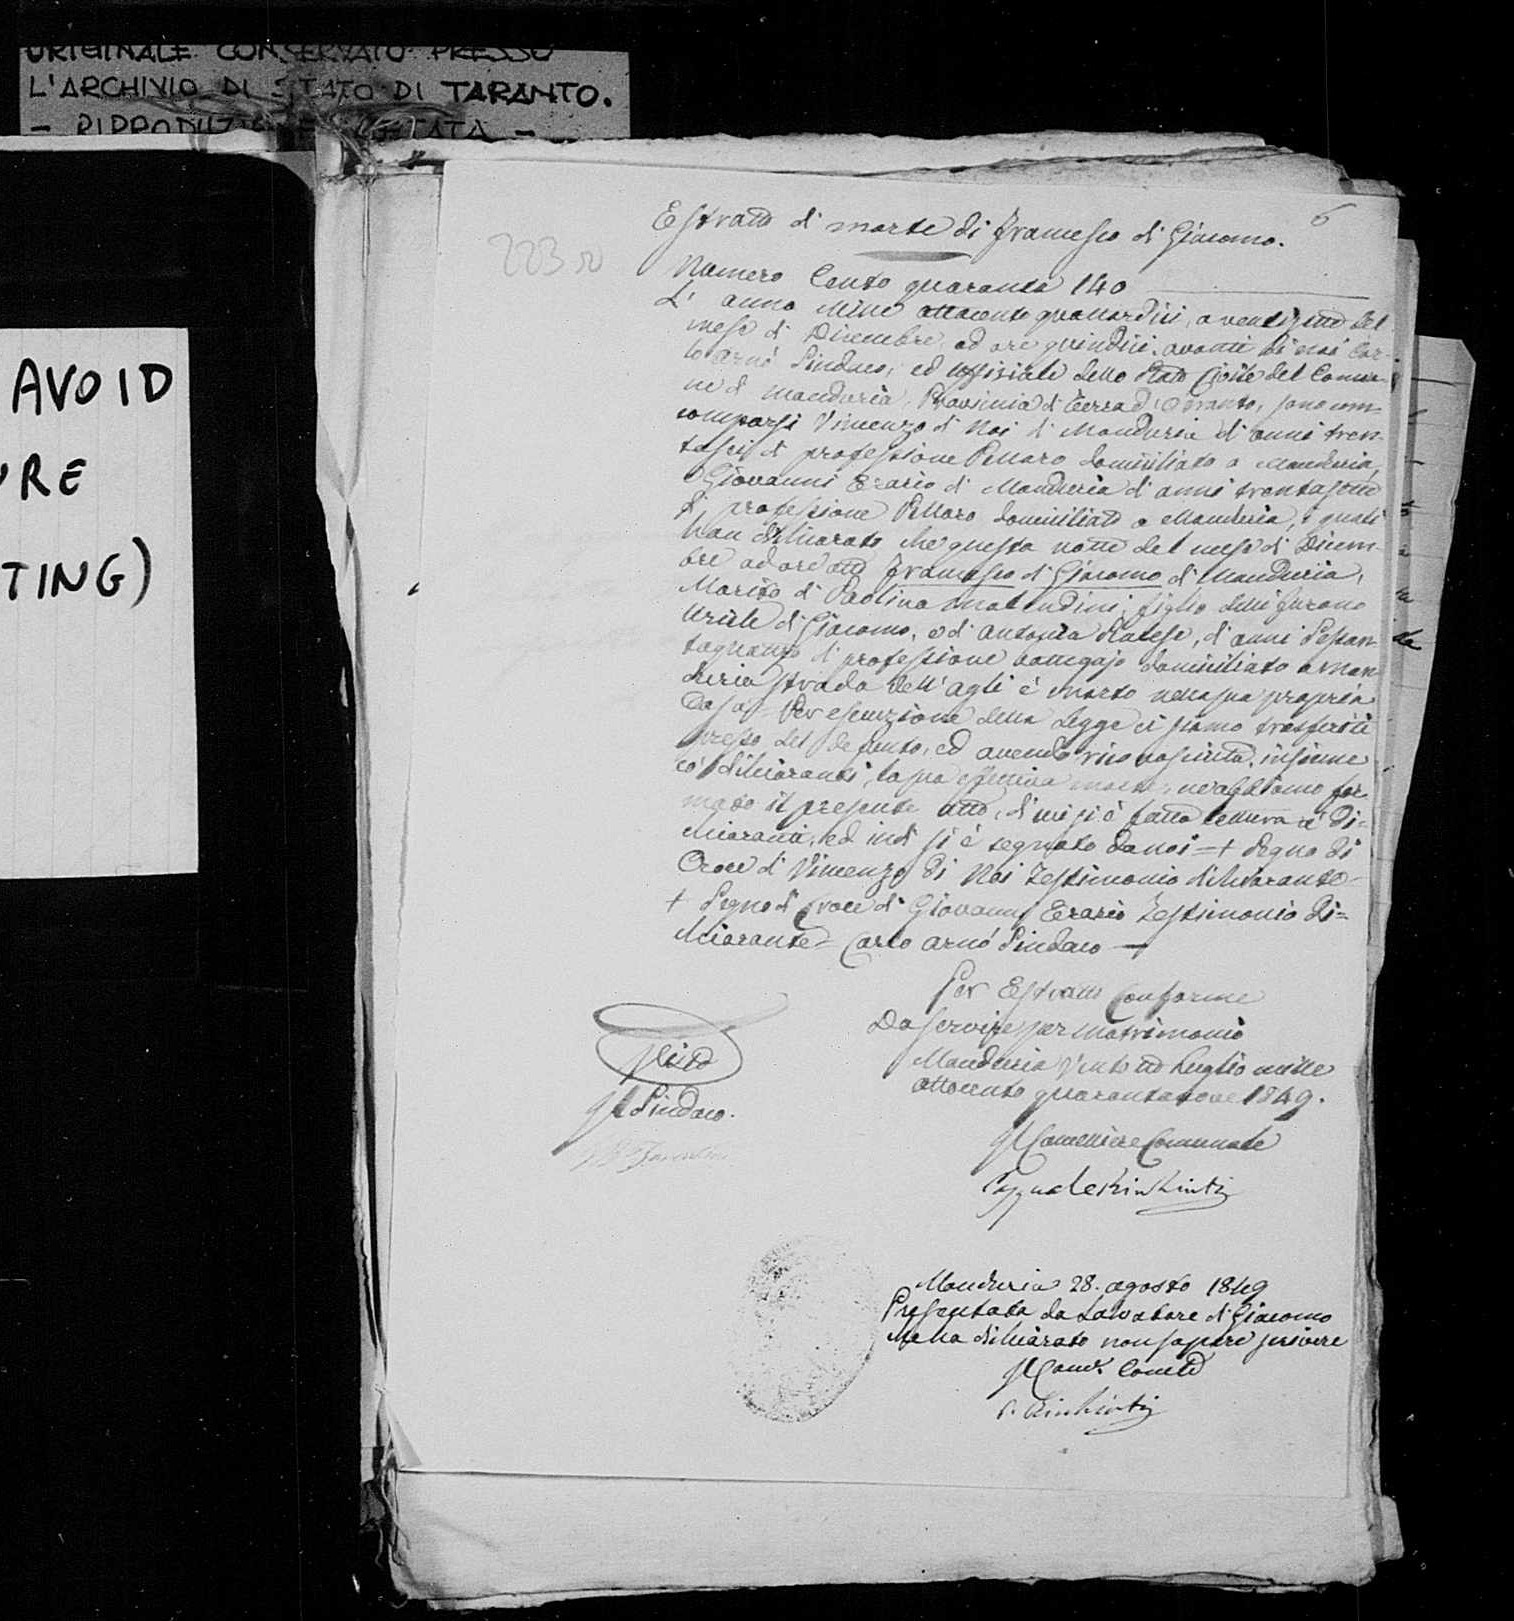 ORIGINALE CONSERVATO PRESSO
L'ARCHIVIO DI STATO DI TARANTO.
AVOID
URE
TING)
6
223
Estratto di morte di Francesco di Giacomo.
Numero Cento quaranta 140
L'anno Mille ottocento quattordici, a ventisette del
mese di Dicembre, ad ore quindici, avanti di noi Car-
lo Arnò Sindaco, ed uffiziale dello Stato Civile del Comu-
ne di Manduria, Provincia di Terra d'Otranto, sono com-
comparsi Vincenzo di Noi di Manduria di anni tren-
tasei di professione Pellaro domiciliato a Manduria,
Giovanni Erario di Manduria di anni trentasette
di professione Pellaro domiciliato a Manduria, i quali
han dichiarato che questa notte del mese di Dicem-
bre ad ore otto Francesco di Giacomo di Manduria,
Marito di Paolina Malendini, figlio delli furono
di Giacomo, e di Antonia, di anni Sessan-
taquattro di professione bottegajo domiciliato a Man-
duria strada dell'Agli è morto nella sua propria
Casa = Per esecuzione della Legge ci siamo trasferiti
presso del defunto, ed avendo riconosciuta, insieme
co' dichiaranti, la sua effettiva morte, ne abbiamo for-
mato il presente atto, di cui si è fatta lettura a' di=
chiaranti, ed indi si è segnato da noi = + Segno di
Croce di Vincenzo di Noi Testimonio dichiarante
+ Segno di Croce di Giovanni Erario Testimonio di=
chiarante = Carlo Arnò Sindaco
Per Estratto Conforme
Da servire per matrimonio
Manduria Luglio mille
ottocento quarantanove 1849.
Visto
Il Sindaco.
Il Cancelliere Comunale
Pasquale
Manduria 28. agosto 1849
Presentata da Salvatore di Giacomo
che ha dichiarato non sapere scrivere
Il Canc.